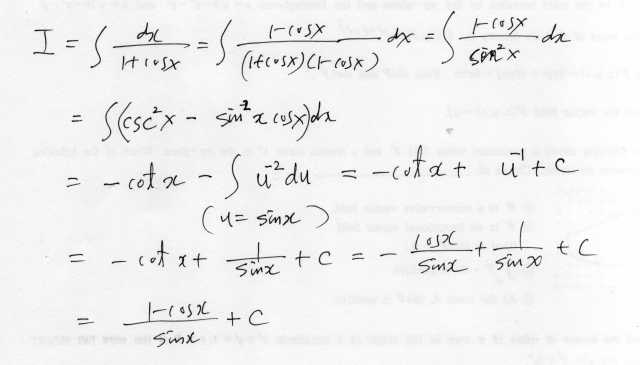 I = ∫ dx/(1+cosx) = ∫ (1-cosx)/((1+cosx)(1-cosx)) dx = ∫ (1-cosx)/(sin²x) dx
= ∫(csc²x - sin⁻²x cosx)dx
= -cot x - ∫ u⁻²du = -cot x + u⁻¹ + C
(u = sinx)
= -cot x + 1/sinx + C = - cosx/sinx + 1/sinx + C
= (1-cosx)/sinx + C